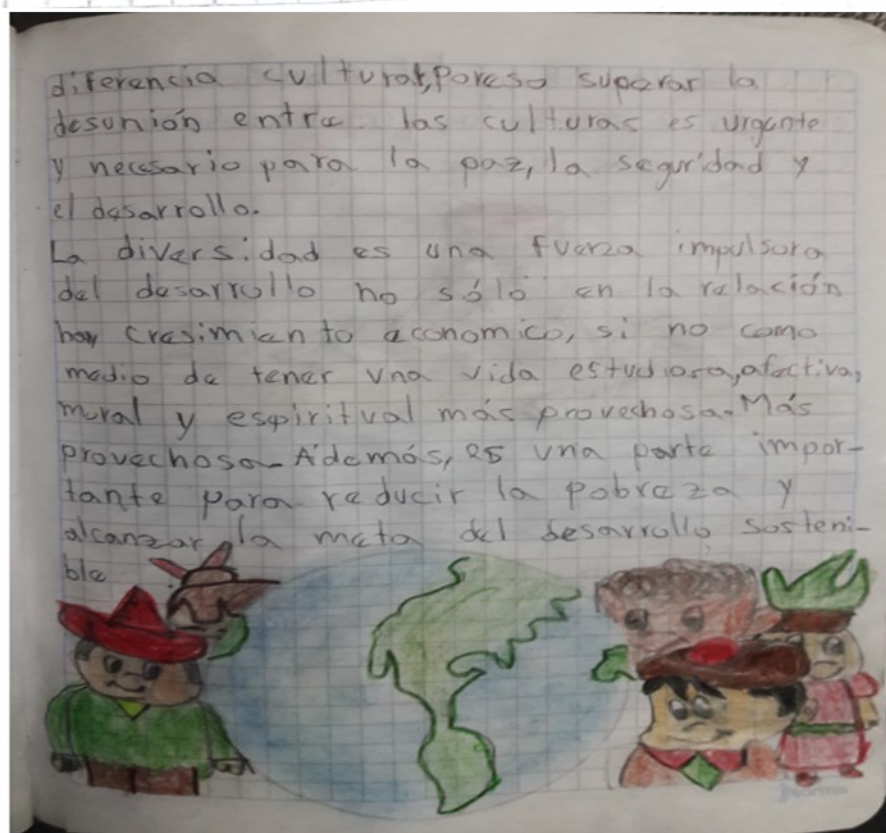 diferencia cultural, Por eso superar la
desunión entre las culturas es urgente
y necesario para la paz, la seguridad y
el desarrollo.
La diversidad es una fuerza impulsora
del desarrollo no sólo en la relación
hay cresimiento economico, si no como
medio de tener una vida estudiosa, afectiva,
moral y espiritual más provechosa. Más
provechosa. Además, es una parte impor-
tante para reducir la pobreza y
alcanzar la meta del desarrollo sosteni-
ble
norma